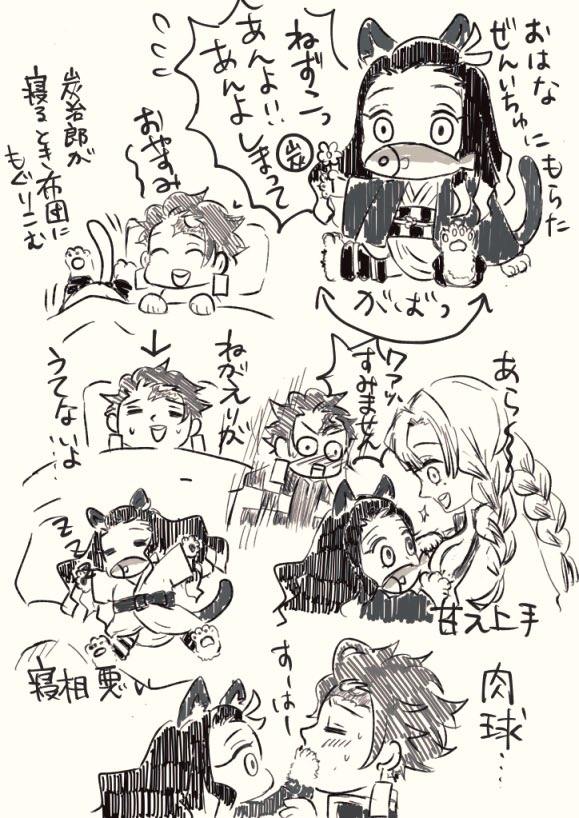 おはな
ぜんいちゅに
もらた
ねずこっ
あんよ!!
あんよしまって
炭
がばっ
おやすみ〜
炭治郎が
寝るとき布団に
もぐりこむ
あら〜
ワァッ
すみません
甘え上手
ねがえりが
うてないよ
zz
寝相悪い
肉球…
すーはー